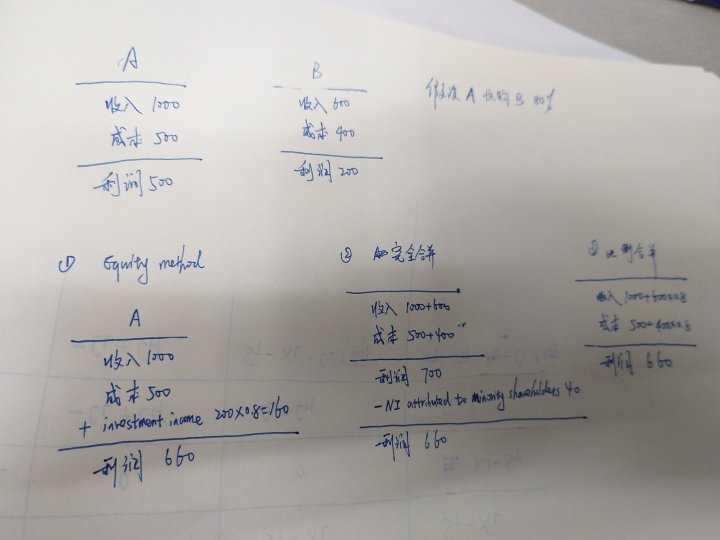 A
收入 1000
成本 500
利润 500
B
收入 600
成本 400
利润 200
假设 A 收购 B 80%
① Equity method
A
收入 1000
成本 500
+ investment income 200×0.8=160
利润 660
② 完全合并
收入 1000+600
成本 500+400
利润 700
- NI attributed to minority shareholders 40
利润 660
③ 比例合并
收入 1000+600×0.8
成本 500+400×0.8
利润 660